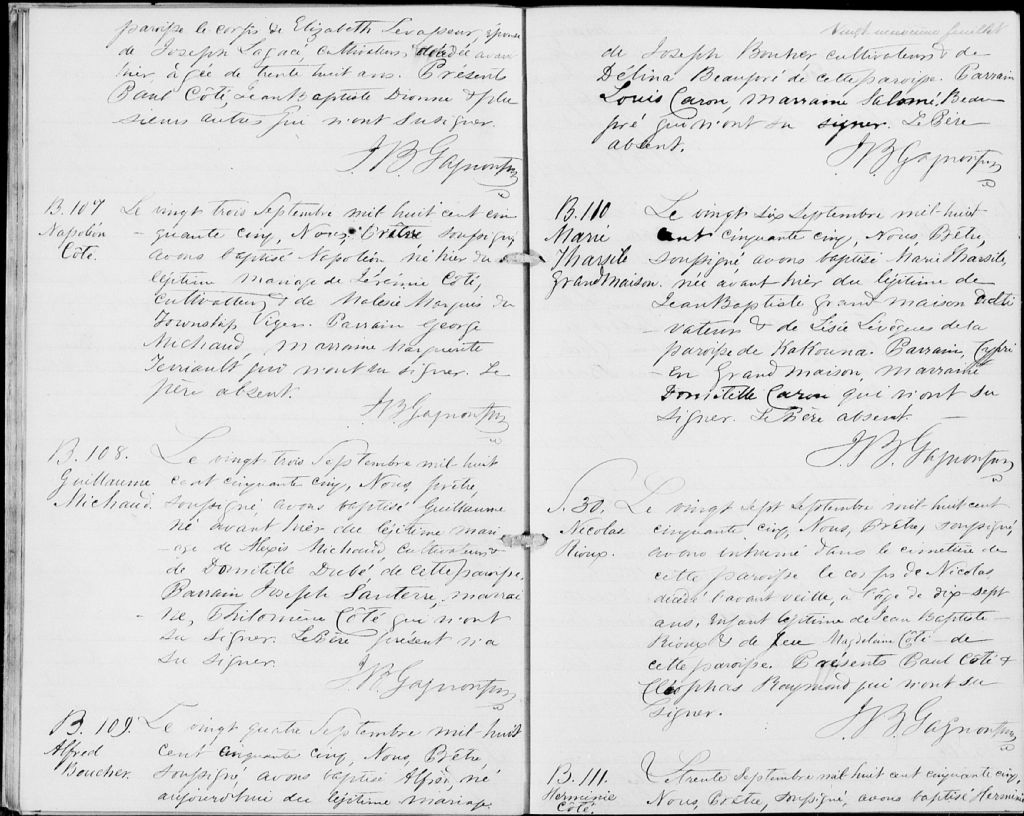 paroisse le corps de Elizabeth Levasseur, épouse
de Joseph Lagacé, cultivateur, décédée avant
hier, âgée de trente huit ans. Présents
Paul Côté, Jean Baptiste Dionne & plu
sieurs autres qui n'ont su signer.
J. B. Gagnon ptre
B. 107
Napoléon
Côté.
Le vingt trois Septembre mil huit cent cin
quante cinq, Nous, Prêtre soussigné,
avons baptisé Napoléon né hier du
légitime mariage de Jérémie Côté,
cultivateur & de Malvie Marquis du
Township Viger. Parrain George
Michaud, marraine Marguerite
Terriault qui n'ont su signer. Le
père absent.
J. B. Gagnon ptre
B. 108.
Guillaume
Michaud.
Le vingt trois Septembre mil huit
cent cinquante cinq, Nous, prêtre,
soussigné, avons baptisé Guillaume
né avant hier du légitime mari-
-age de Alexis Michaud, cultivateur &
de Domitille Dubé de cette paroisse.
Parrain Joseph Santerre, marrai
ne, Philomène Côté qui n'ont
su signer. Le Père présent n'a
su signer.
J. B. Gagnon ptre
B. 109.
Alfred
Boucher.
Le vingt quatre Septembre mil huit
cent cinquante cinq, Nous, Prêtre,
soussigné avons baptisé Alfred, né
aujourd'hui du légitime mariage
de Joseph Boucher cultivateur & de
Délina Beaupré de cette paroisse. Parrain
Louis Caron, marraine Salomé Beau
pré qui n'ont su signer. Le Père
absent.
J. B. Gagnon ptre
B. 110
Marie
Tharsile
Grandmaison.
Le vingt six Septembre mil huit
cent cinquante cinq, Nous, Prêtre,
soussigné, avons baptisé Marie Tharsile,
née avant hier du légitime de
Jean Baptiste Grandmaison culti
-vateur & de Lisée Lévêque de la
paroisse de Kakouna. Parrain, Cypri
-en Grandmaison, marraine
Domitille Caron qui n'ont su
signer. Le Père absent.
J. B. Gagnon ptre
S. 30.
Nicolas
Rioux.
Le vingt sept Septembre mil huit cent
cinquante cinq, Nous, Prêtre, soussigné,
avons inhumé dans le cimetière de
cette paroisse le corps de Nicolas
décédé l'avant veille, à l'âge de dix-sept
ans, Enfant légitime de Jean Baptiste
Rioux & de feue Magdeleine Côté de
cette paroisse. Présents Paul Côté &
Cléophas Raymond qui n'ont su
signer.
J. B. Gagnon ptre
B. 111.
Herménie
Côté.
Le trente Septembre mil huit cent cinquante cinq,
Nous, Prêtre, soussigné, avons baptisé Herménie